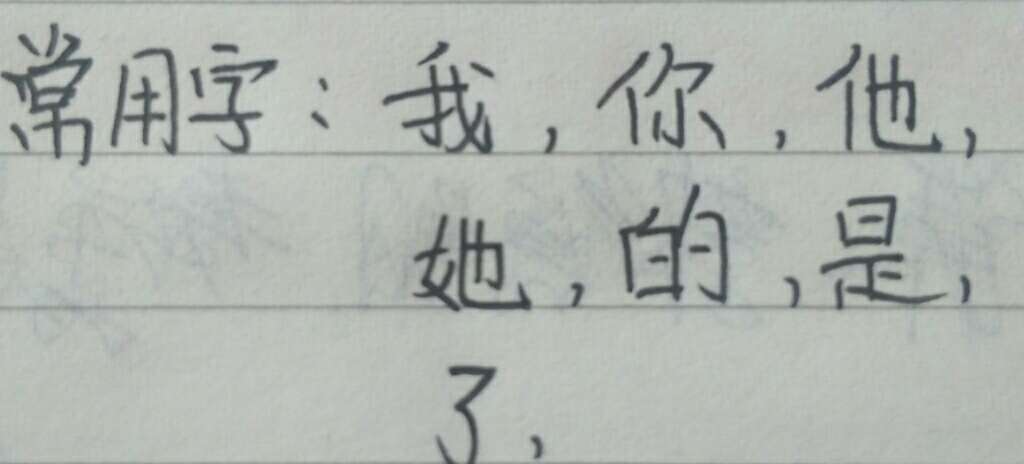 常用字：我，你，他，
她，的，是，
了，